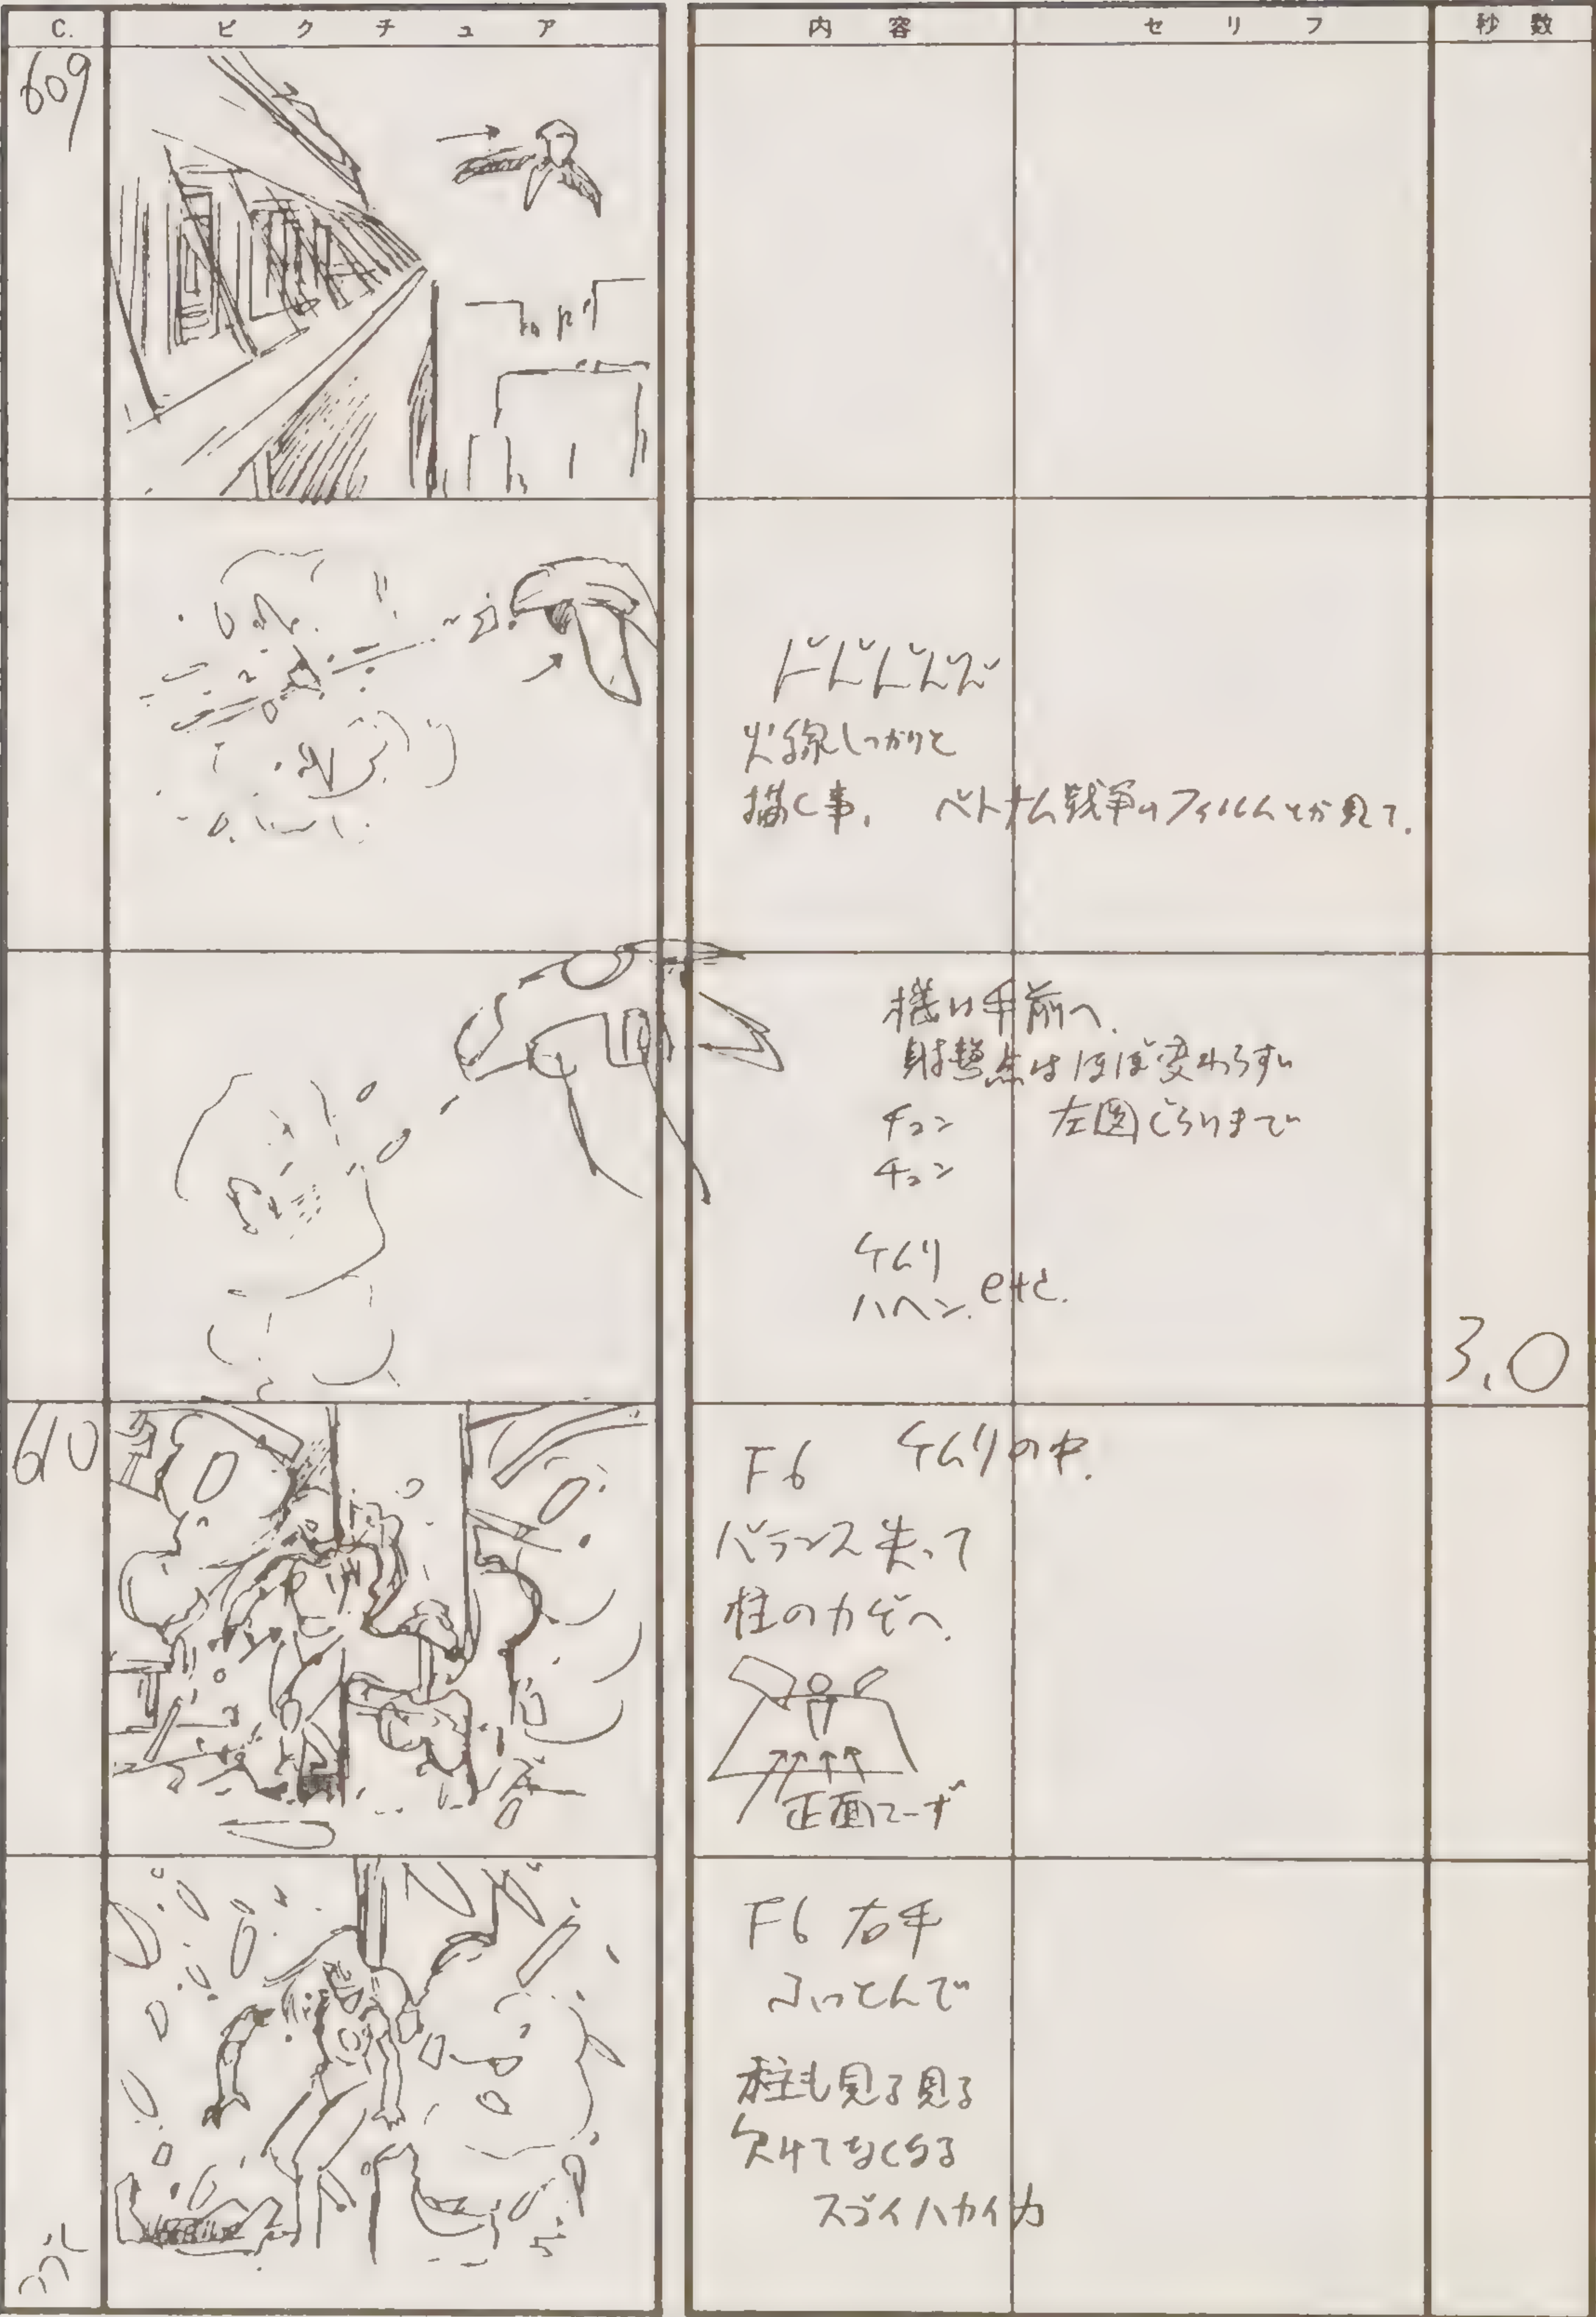 C. ピクチュア 内容 セリフ 秒数
609
ドドドドド
火線しっかりと
描く事。 ベトナム戦争のフィルムとか見て。
機は手前へ
ほぼ変わらずい
チュン 左図ぐらいまで
チュン
ケムリ
ハヘン etc.
3.0
610
F6 ケムリの中.
バランス失って
柱のカゲへ.
正面
F6 右手
ふっとんで
柱も見る見る
欠けてなくなる
スゴイハカイ力